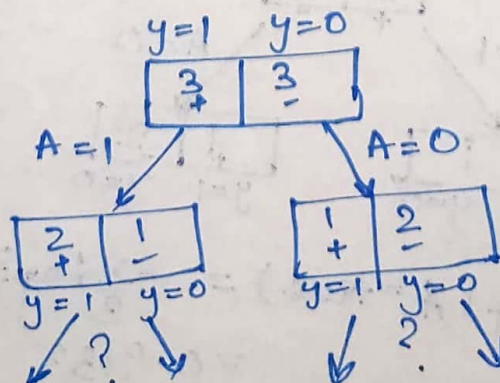 y=1 y=0
3 3
+ -
A=1 A=0
2 1 1 2
+ - + -
y=1 y=0 y=1 y=0
? ?